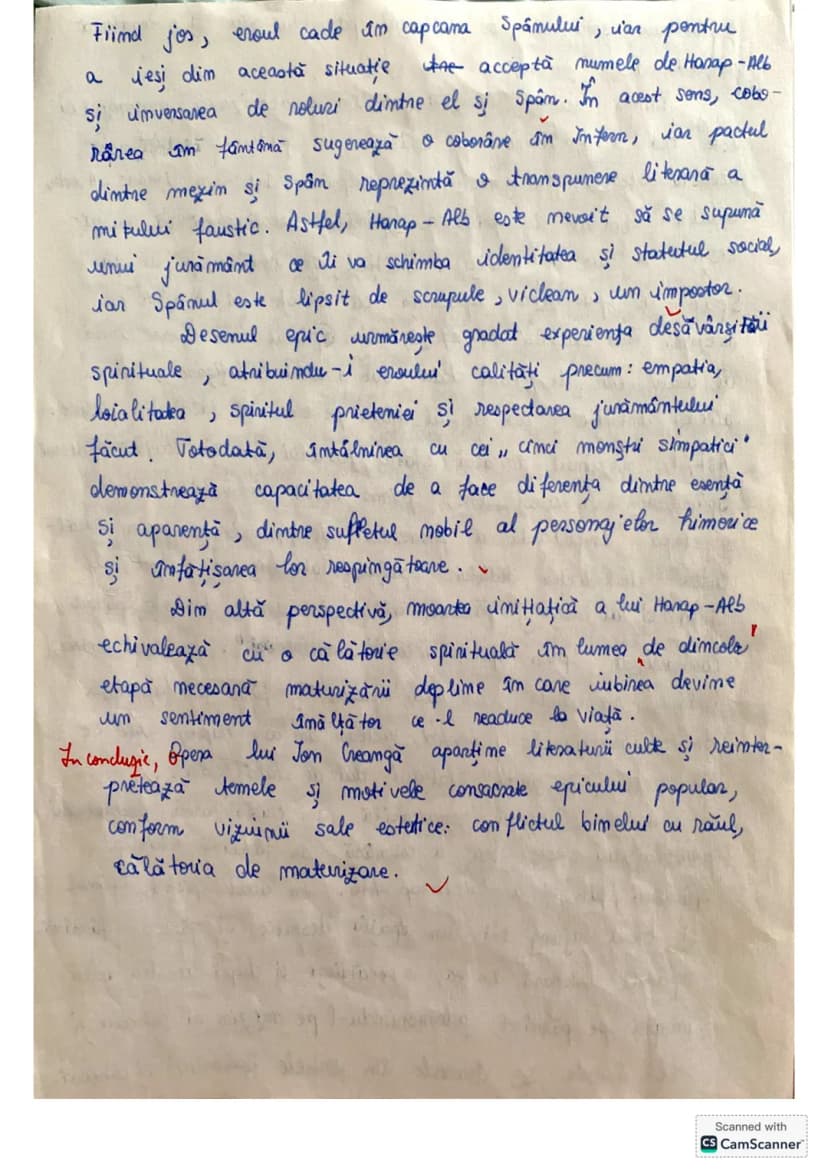 Fiind jos, eroul cade în capcana Spânului, iar pentru
a ieși din această situație acceptă numele de Harap-Alb
și inversarea de roluri dintre el și Spân. În acest sens, cobo-
rârea în fântână sugerează o coborâre în Infern, iar pactul
dintre mezin și Spân reprezintă o transpunere literară a
mitului faustic. Astfel, Harap-Alb este nevoit să se supună
unui jurământ ce îi va schimba identitatea și statutul social,
iar Spânul este lipsit de scrupule, viclean, un impostor.
Desenul epic urmărește gradat experiența desăvârșității
spirituale, atribuindu-i eroului calități precum: empatia,
loialitatea, spiritul prieteniei și respectarea jurământului
făcut. Totodată, întâlnirea cu cei „cinci monștri simpatici"
demonstrează capacitatea de a face diferența dintre esență
și aparență, dintre sufletul nobil al personajelor himerice
și înfățișarea lor respingătoare.
Din altă perspectivă, moartea inițiatică a lui Harap-Alb
echivalează cu o călătorie spirituală în lumea de dincolo,
etapă necesară maturizării depline în care iubirea devine
un sentiment înălțător ce-l readuce la viață.
In concluzie, Opera lui Ion Creangă aparține literaturii culte și reinter-
pretează temele și motivele consacrate epicului popular,
conform viziunii sale estetice: conflictul binelui cu răul,
călătoria de maturizare.
Scanned with
CS CamScanner